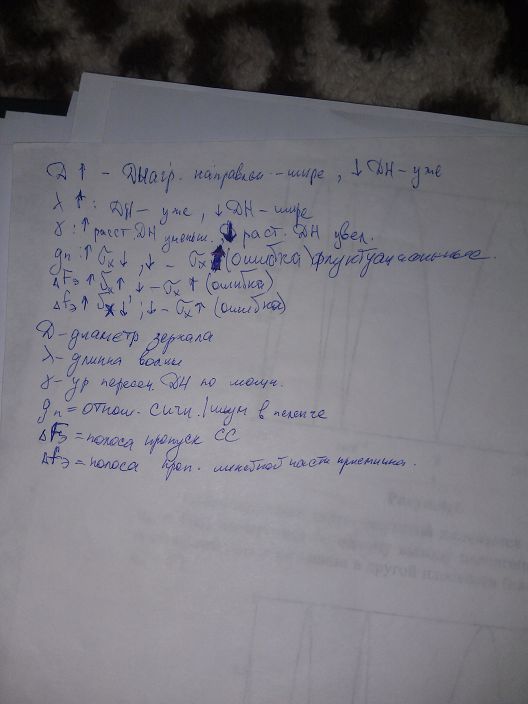 D ↑ - Диагр. направлен - шире, ↓ ДН - уже
λ ↑: ДН - уже, ↓ ДН - шире
γ: ↑ расст. ДН уменьш. ↓ раст. ДН увел.
gп: ↑ σx ↓, ↓ - σx ↑ (ошибка) флуктуационные.
ΔFэ ↑ σx ↑, ↓ - σx ↑ (ошибка)
Δfэ ↑ σx ↓, ↓ - σx ↑ (ошибка)
D - диаметр зеркала
λ - длинна волны
γ - ур пересеч. ДН по мощн.
gп = отнош. сигн. / шум в пеленге
ΔFэ = полоса пропуск СС
Δfэ = полоса проп. линейной части приемника.